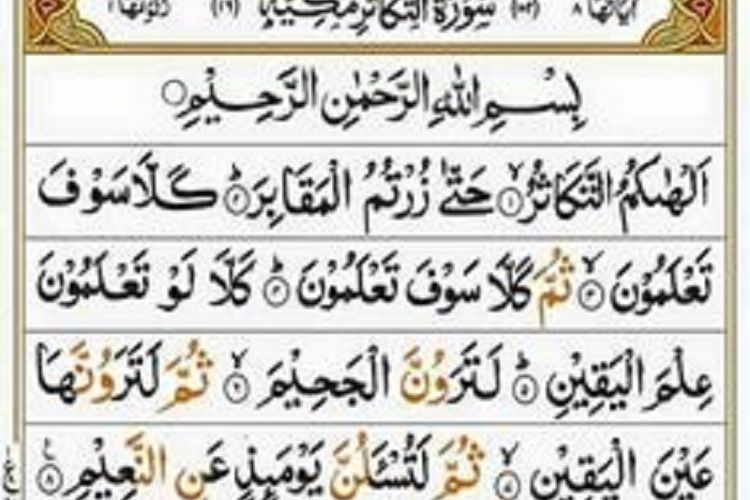 اٰيَاتُهَا ٨ (١٠٢) سُوْرَةُ التَّكَاثُرِ مَكِّيَّةٌ (١٦) رُكُوْعُهَا ١
بِسْمِ اللّٰهِ الرَّحْمٰنِ الرَّحِيْمِ
اَلْهٰىكُمُ التَّكَاثُرُ ۙ‏﴿۱﴾ حَتّٰى زُرْتُمُ الْمَقَابِرَ ؕ‏﴿۲﴾ كَلَّا سَوْفَ
تَعْلَمُوْنَ ۙ‏﴿۳﴾ ثُمَّ كَلَّا سَوْفَ تَعْلَمُوْنَ ؕ‏﴿۴﴾ كَلَّا لَوْ تَعْلَمُوْنَ
عِلْمَ الْيَقِيْنِ ؕ‏﴿۵﴾ لَتَرَوُنَّ الْجَحِيْمَ ۙ‏﴿۶﴾ ثُمَّ لَتَرَوُنَّهَا
عَيْنَ الْيَقِيْنِ ۙ‏﴿۷﴾ ثُمَّ لَتُسْـَٔلُنَّ يَوْمَىِٕذٍ عَنِ النَّعِيْمِ ﴿۸﴾